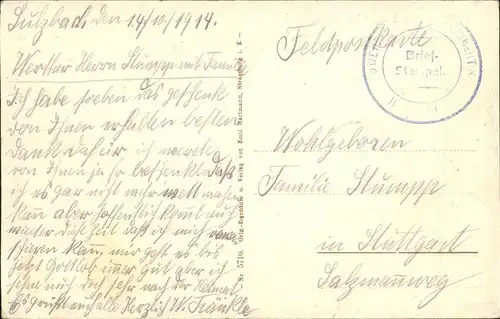 Sulzbach, den 14/10/1914.
Werther Herrn Stumpp mit Familie
Ich habe soeben das geschenk
von Ihnen erhalten besten
Dank dafür ich werde
von Ihnen ja so beschenkt Daß
ich es gar nicht mehr wett machen
kan aber hoffentlich komt auch
wieder die Zeit daß ich mich
kann, mir geht es bis
jetzt Gottlob imer gut aber ich
sehne mich doch sehr nach der Heimat
Es grüßt euch alle Herzlich W. Fränkle
Nr. 5710. Orig.-Eigentum u. Verlag von Emil Hartmann, Strassburg i. E.
Feldpostkarte
Brief-
Stempel.
Wohlgeboren
Familie Stumpp
in Stuttgart
Salzmannweg